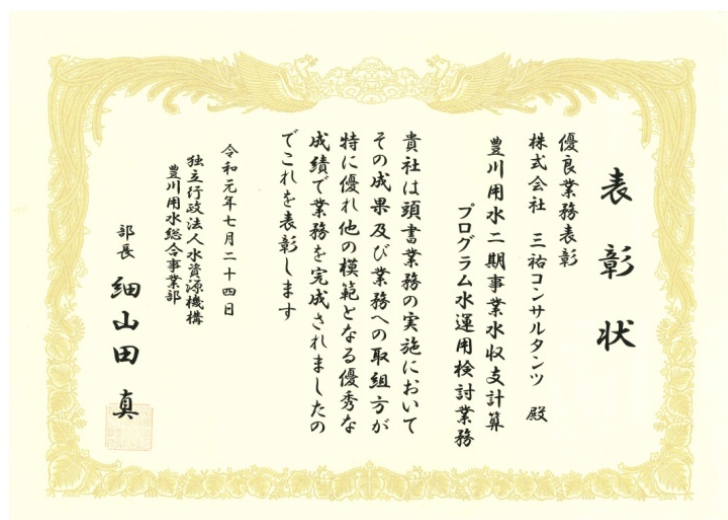 表彰状
優良業務表彰
株式会社 三祐コンサルタンツ 殿
豊川用水二期事業水収支計算
プログラム水運用検討業務
貴社は頭書業務の実施において
その成果及び業務への取組方が
特に優れ他の模範となる優秀な
成績で業務を完成されましたの
でこれを表彰します
令和元年七月二十四日
独立行政法人水資源機構
豊川用水総合事業部
部長 細山田 真